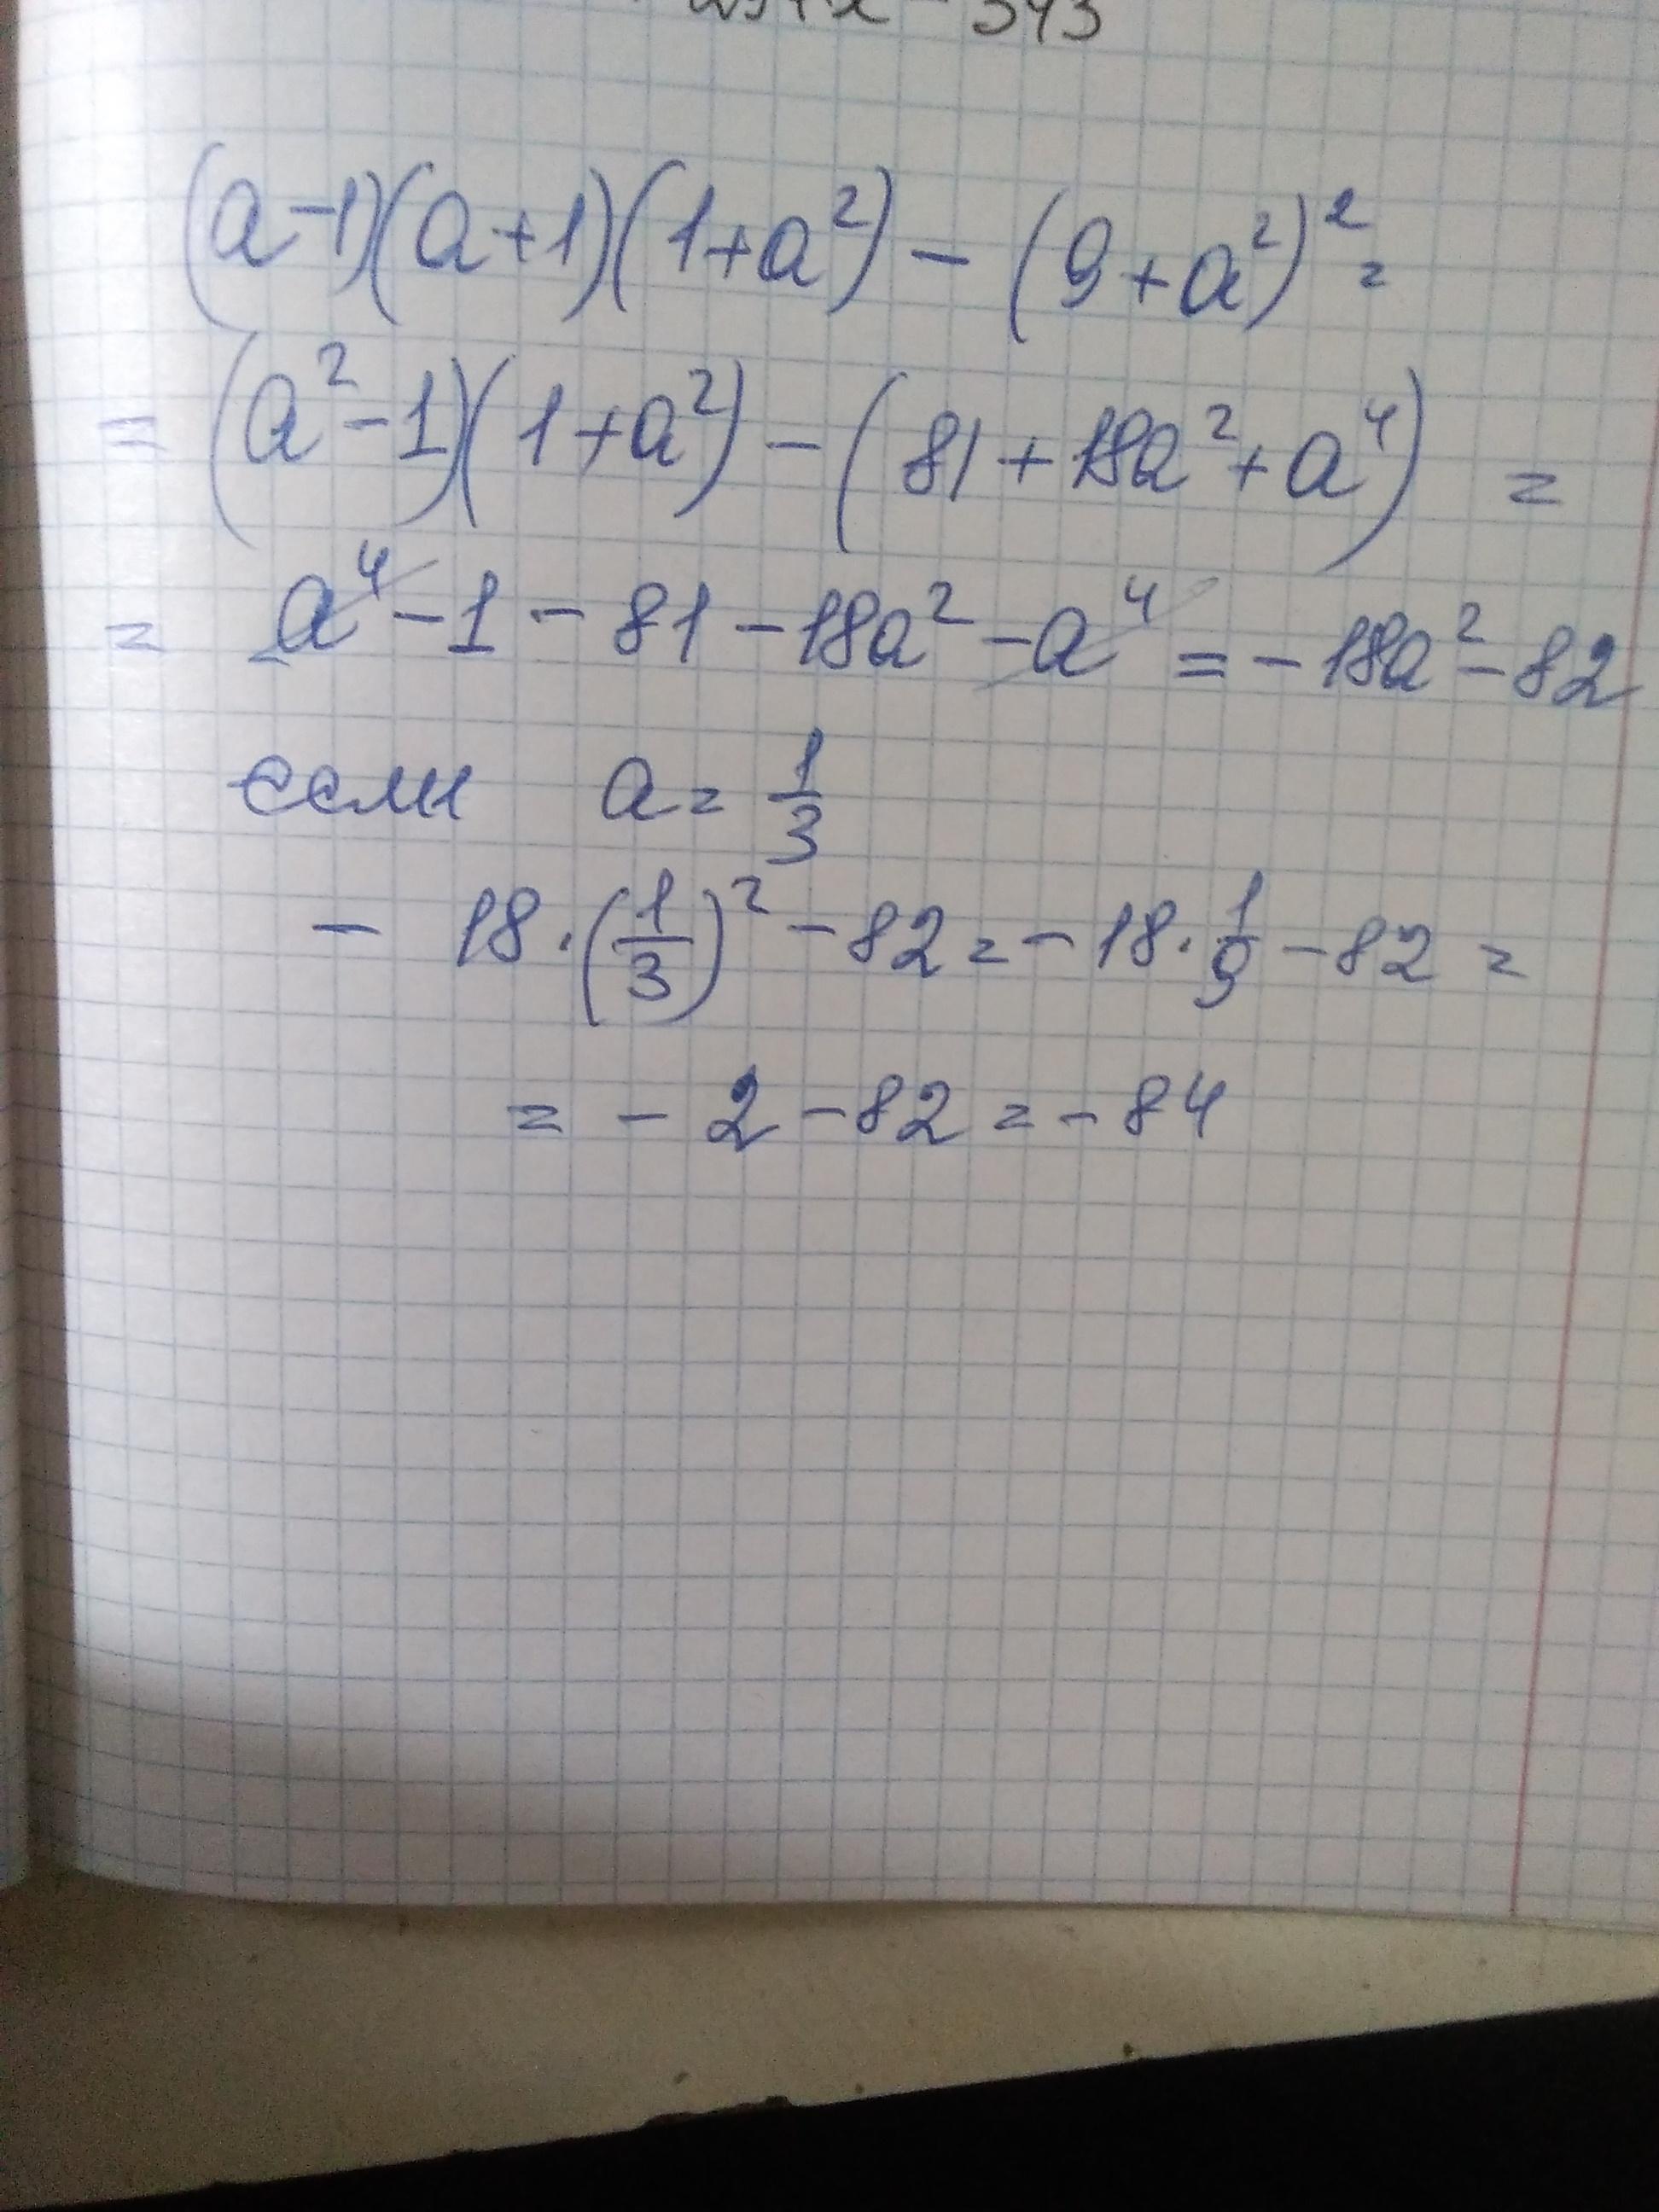 (a-1)(a+1)(1+a²) - (9+a²)² =
= (a²-1)(1+a²) - (81+18a²+a⁴) =
= a⁴ - 1 - 81 - 18a² - a⁴ = - 18a² - 82
если a = 1/3
- 18 · (1/3)² - 82 = - 18 · 1/9 - 82 =
= - 2 - 82 = - 84